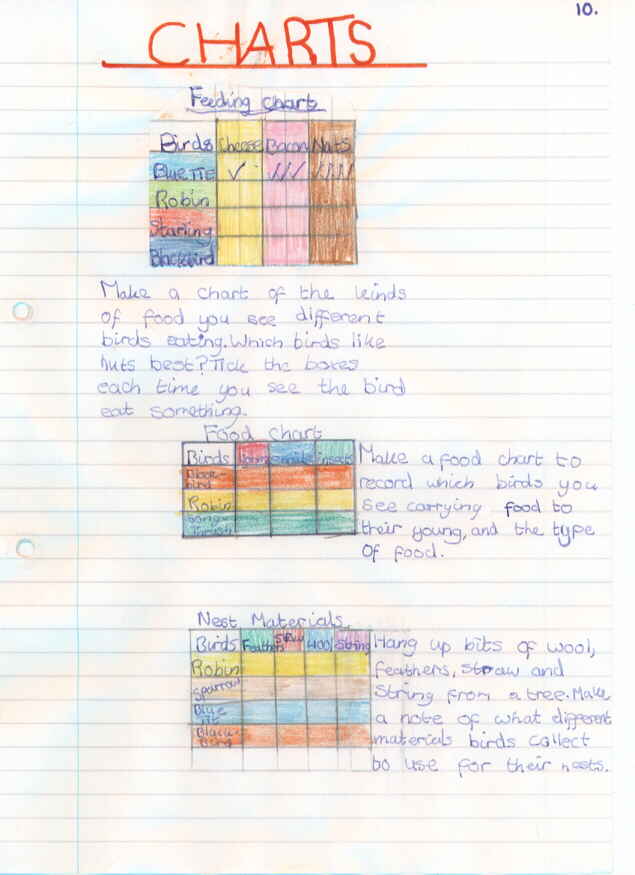 10.
CHARTS
Feeding chart
Birds Cheese Bacon Nuts
Blue TTe ✓ /// ////
Robin
Starling
Blackbird
Make a chart of the kinds
of food you see different
birds eating. Which birds like
nuts best? Tick the boxes
each time you see the bird
eat something.
Food chart
Birds insects
Black-
bird
Robin
Song-
thrush
Make a food chart to
record which birds you
see carrying food to
their young, and the type
of food.
Nest Materials.
Birds Feathers Straw Wool String
Robin
Sparrow
Blue
tit
Black-
bird
Hang up bits of wool,
feathers, straw and
string from a tree. Make
a note of what different
materials birds collect
to use for their nests.